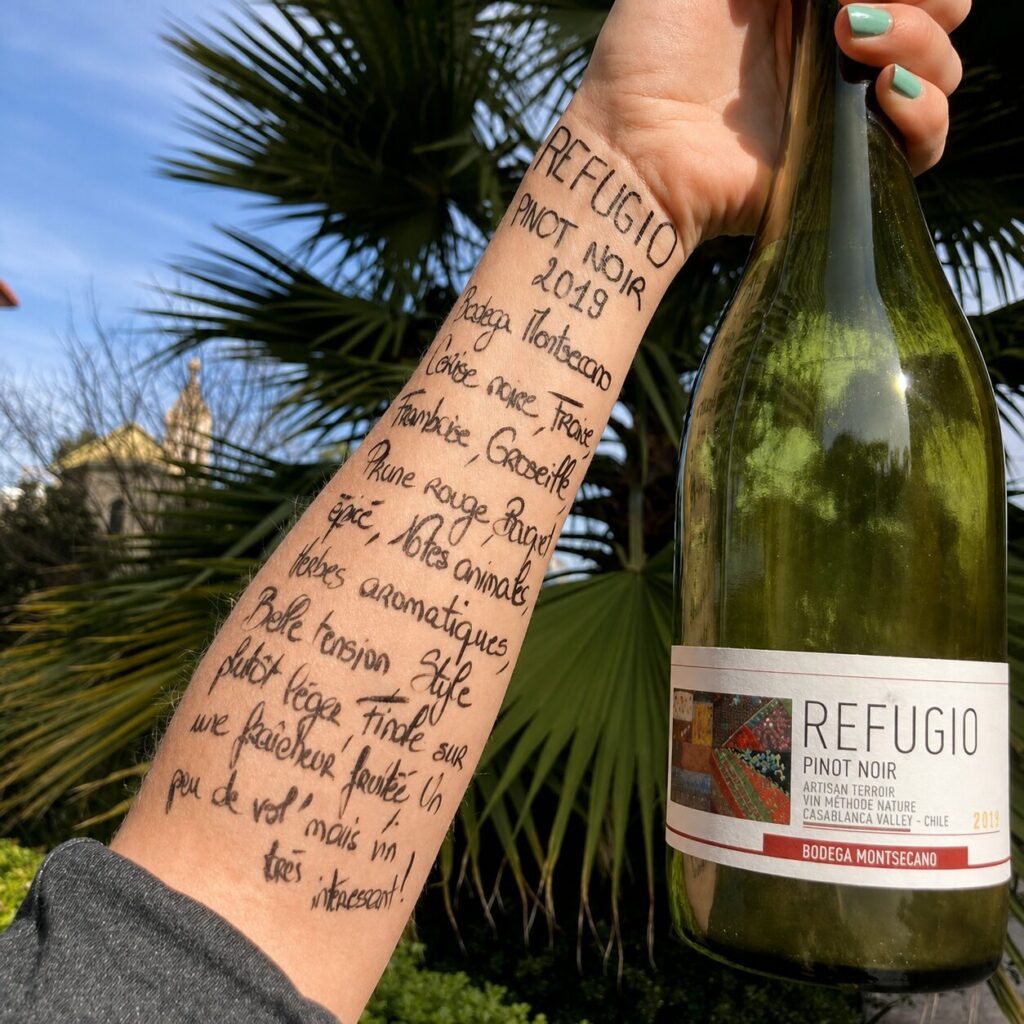 REFUGIO
PINOT NOIR
2019
Bodega Montsecano
Cerise noire, Fraise,
Framboise, Groseille,
Prune rouge, Baquet
épicé, Notes animales,
Herbes aromatiques,
Belle tension Style
plutôt léger, Finale sur
une fraîcheur fruitée Un
peu de vol' mais vin
très
intéressant!
REFUGIO
PINOT NOIR
ARTISAN TERROIR
VIN MÉTHODE NATURE
CASABLANCA VALLEY - CHILE
2019
BODEGA MONTSECANO